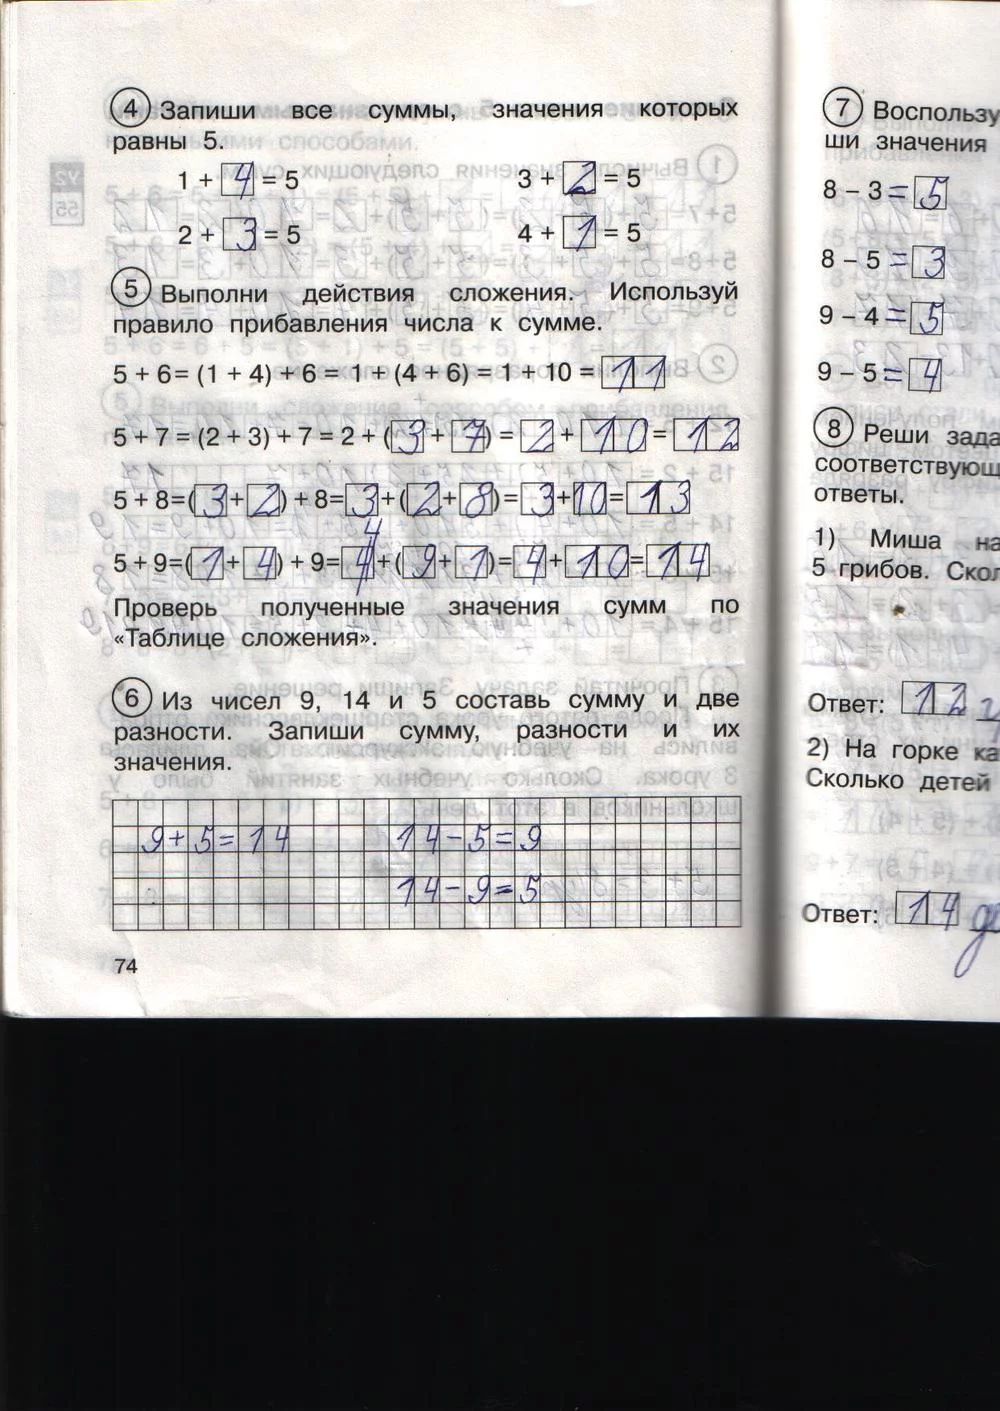 4 Запиши все суммы, значения которых
равны 5.
1 + 4 = 5 3 + 2 = 5
2 + 3 = 5 4 + 1 = 5
5 Выполни действия сложения. Используй
правило прибавления числа к сумме.
5 + 6 = (1 + 4) + 6 = 1 + (4 + 6) = 1 + 10 = 11
5 + 7 = (2 + 3) + 7 = 2 + (3 + 7) = 2 + 10 = 12
5 + 8 = (3 + 2) + 8 = 3 + (2 + 8) = 3 + 10 = 13
4
5 + 9 = (1 + 4) + 9 = 4 + (9 + 1) = 4 + 10 = 14
Проверь полученные значения сумм по
«Таблице сложения».
6 Из чисел 9, 14 и 5 составь сумму и две
разности. Запиши сумму, разности и их
значения.
9 + 5 = 14 14 - 5 = 9
14 - 9 = 5
74
7 Воспользу
ши значения
8 – 3 = 5
8 – 5 = 3
9 – 4 = 5
9 – 5 = 4
8 Реши зада
соответствующ
ответы.
1) Миша на
5 грибов. Скол
Ответ: 12
2) На горке ка
Сколько детей
Ответ: 14